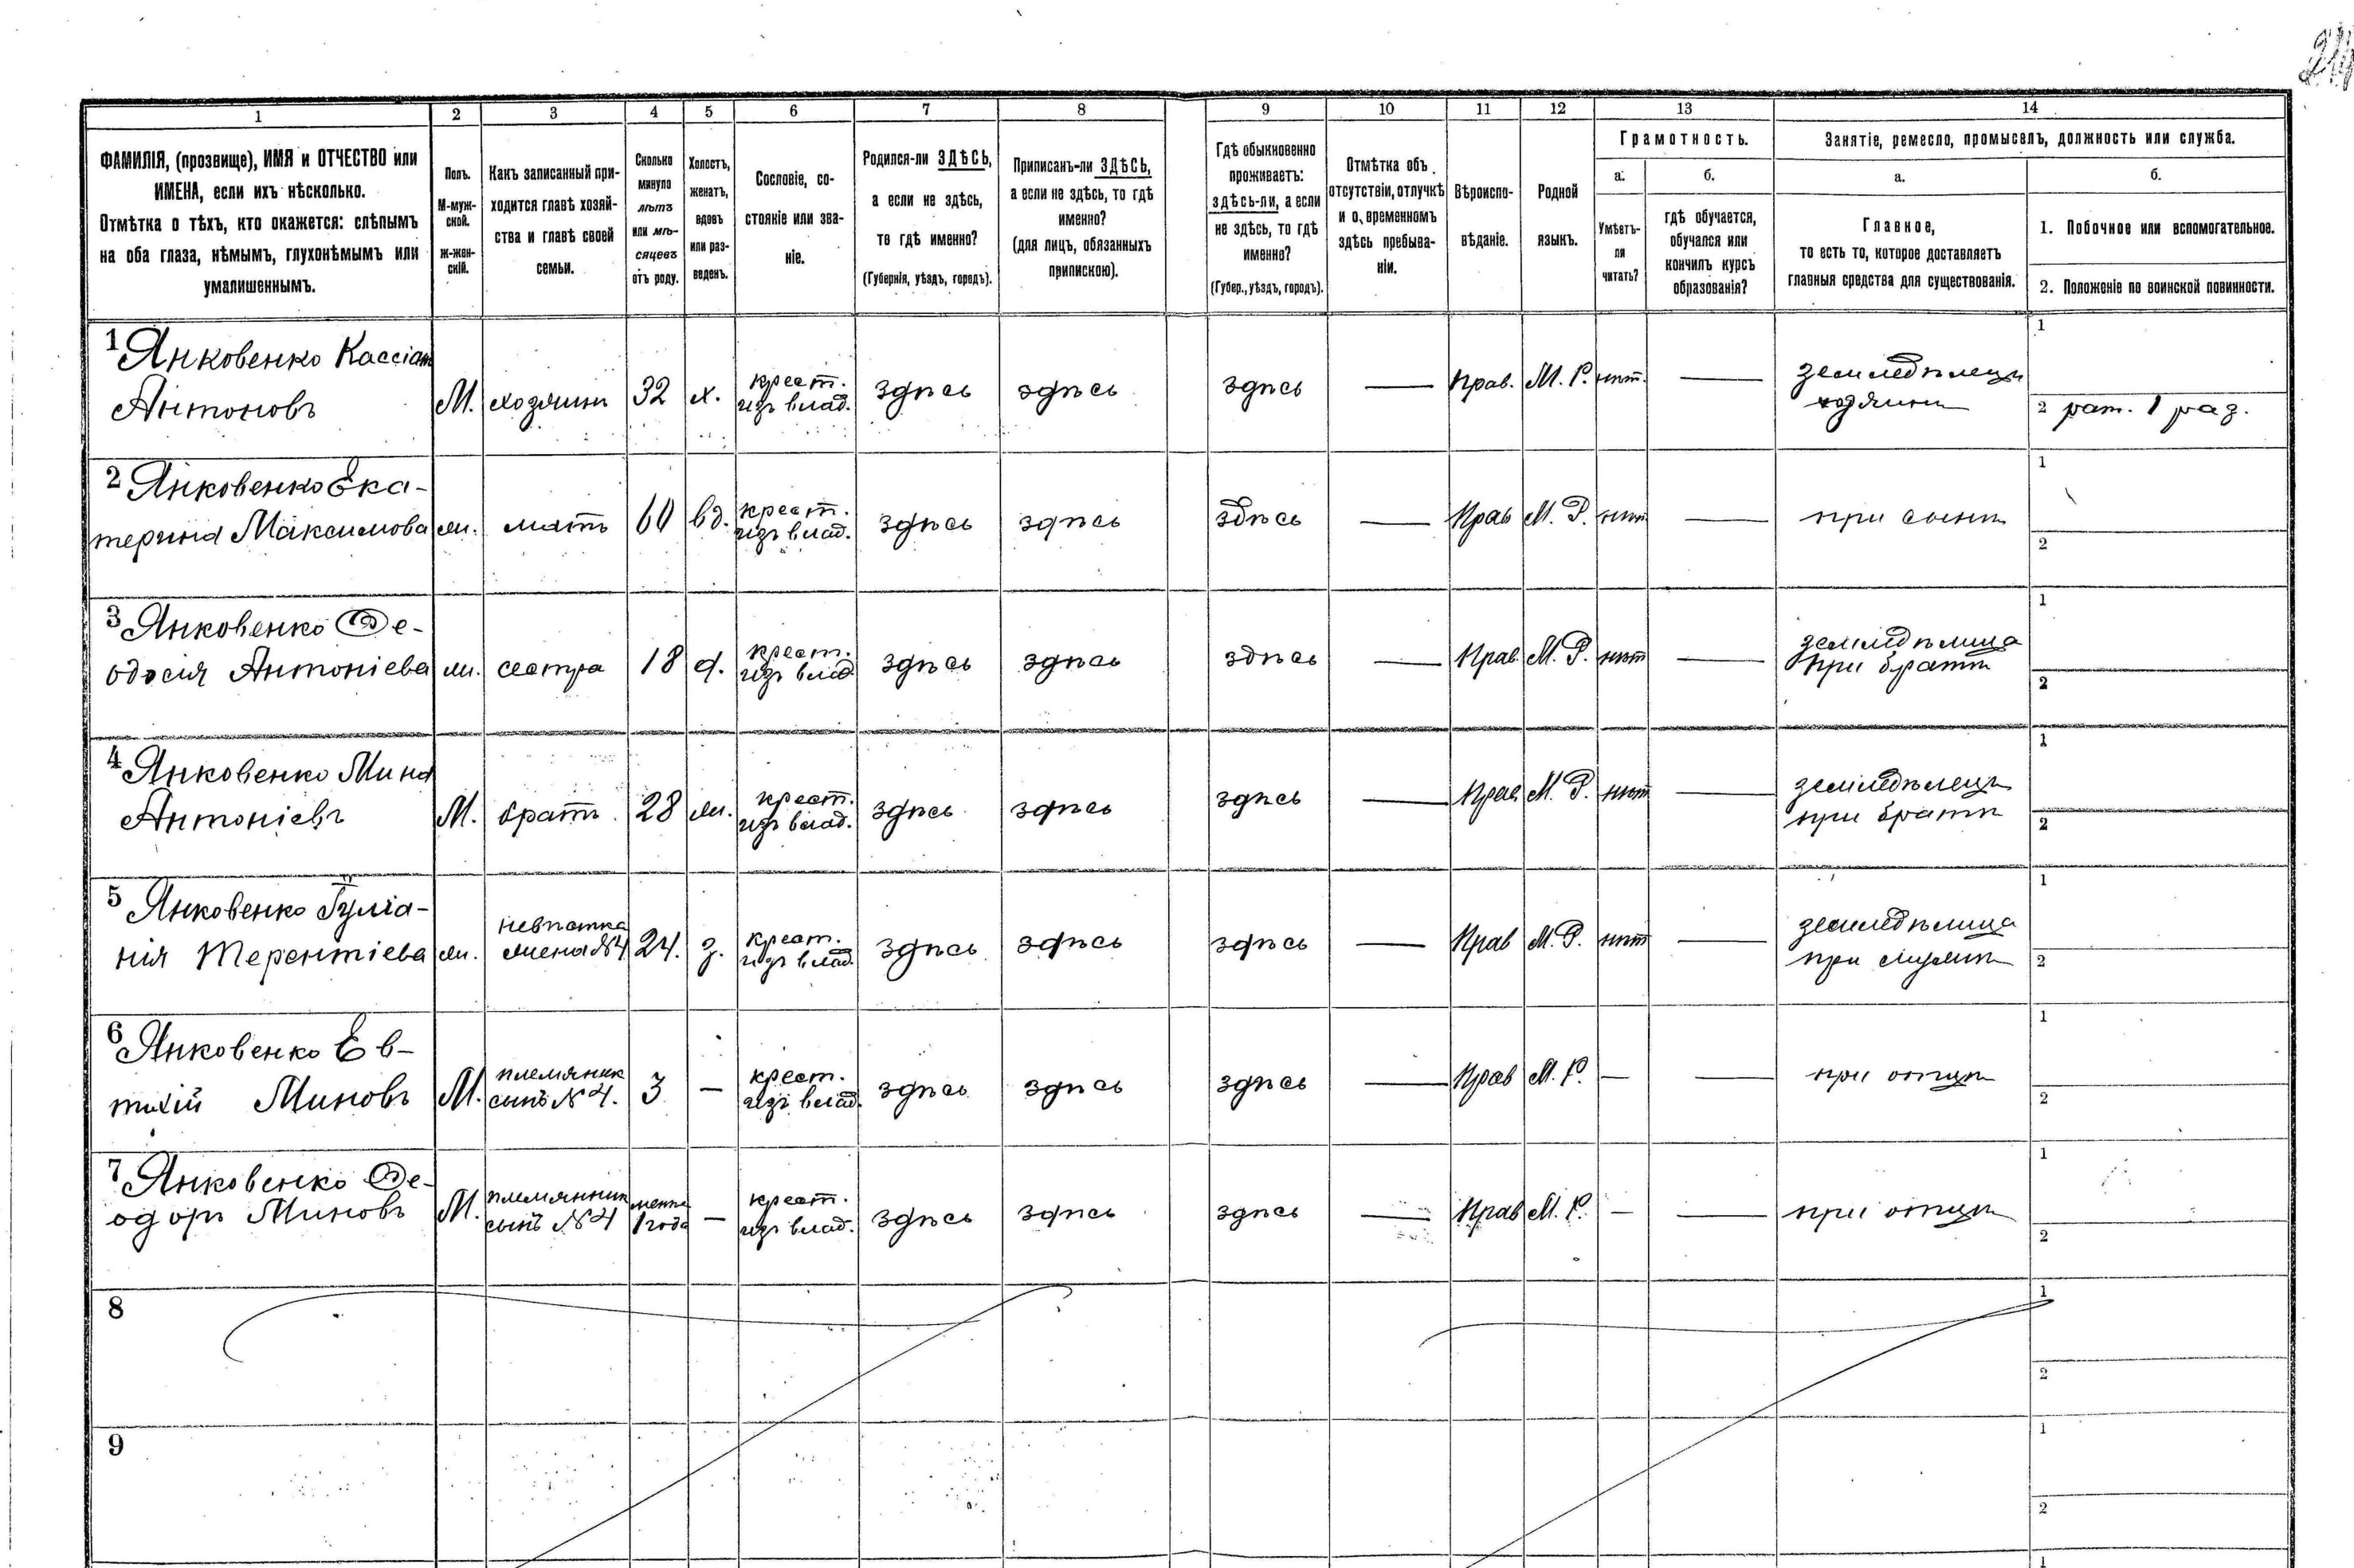 1 2 3 4 5 6 7 8 9 10 11 12 13 14
ФАМИЛІЯ, (прозвище), ИМЯ и ОТЧЕСТВО или
ИМЕНА, если ихъ нѣсколько.
Отмѣтка о тѣхъ, кто окажется: слѣпымъ
на оба глаза, нѣмымъ, глухонѣмымъ или
умалишеннымъ.
Полъ.
М-муж-
ской.
ж-жен-
скій.
Какъ записанный при-
ходится главѣ хозяй-
ства и главѣ своей
семьи.
Сколько
минуло
лѣтъ
или мѣ-
сяцевъ
отъ роду.
Холостъ,
женатъ,
вдовъ
или раз-
веденъ.
Сословіе, со-
стояніе или зва-
ніе.
Родился-ли ЗДѢСЬ,
а если не здѣсь,
то гдѣ именно?
(Губернія, уѣздъ, городъ).
Приписанъ-ли ЗДѢСЬ,
а если не здѣсь, то гдѣ
именно?
(для лицъ, обязанныхъ
припискою).
Гдѣ обыкновенно
проживаетъ:
здѣсь-ли, а если
не здѣсь, то гдѣ
именно?
(Губер., уѣздъ, городъ).
Отмѣтка объ
отсутствіи, отлучкѣ
и о, временномъ
здѣсь пребыва-
ніи.
Вѣроиспо-
вѣданіе.
Родной
языкъ.
Грамотность.
а.
Умѣетъ-
ли
читать?
б.
гдѣ обучается,
обучался или
кончилъ курсъ
образованія?
Занятіе, ремесло, промыселъ, должность или служба.
а.
Главное,
то есть то, которое доставляетъ
главныя средства для существованія.
б.
1. Побочное или вспомогательное.
2. Положеніе по воинской повинности.
1 Янковенко Кассіан
Антоновъ
М.
хозяинъ
32
х.
крест.
изъ влад.
здѣсь
здѣсь
здѣсь
—
Прав.
М. Р.
нѣт.
—
земледѣлецъ
хозяинъ
1
2 рат. 1 раз.
2 Янковенко Ека-
терина Максимова
ж.
мать
60
вд.
крест.
изъ влад.
здѣсь
здѣсь
здѣсь
—
Прав
М. Р.
нѣт
—
при сынѣ
1
2
3 Янковенко Ѳе-
одосія Антоніева
ж.
сестра
18
д.
крест.
изъ влад
здѣсь
здѣсь
здѣсь
—
Прав.
М. Р.
нѣт
—
земледѣлица
при братѣ
1
2
4 Янковенко Мина
Антоніевъ
М.
братъ
28
ж.
крест.
изъ влад.
здѣсь
здѣсь
здѣсь
—
Прав
М. Р.
нѣт
—
земледѣлецъ
при братѣ
1
2
5 Янковенко Іуліа-
нія Терентіева
ж.
невѣстка
жена №4
24.
з.
крест.
изъ влад.
здѣсь
здѣсь
здѣсь
—
Прав
М. Р.
нѣт
—
земледѣлица
при мужѣ
1
2
6 Янковенко Ев-
тихій Миновъ
М.
племяник
сынъ № 4.
3
—
крест.
изъ влад.
здѣсь
здѣсь
здѣсь
—
Прав
М. Р.
—
—
при отцѣ
1
2
7 Янковенко Ѳе-
одоръ Миновъ
М.
племянник
сынъ № 4
менѣе
1 года
—
крест.
изъ влад.
здѣсь
здѣсь
здѣсь
—
Прав
М. Р.
—
—
при отцѣ
1
2
8
1
2
9
1
2
1